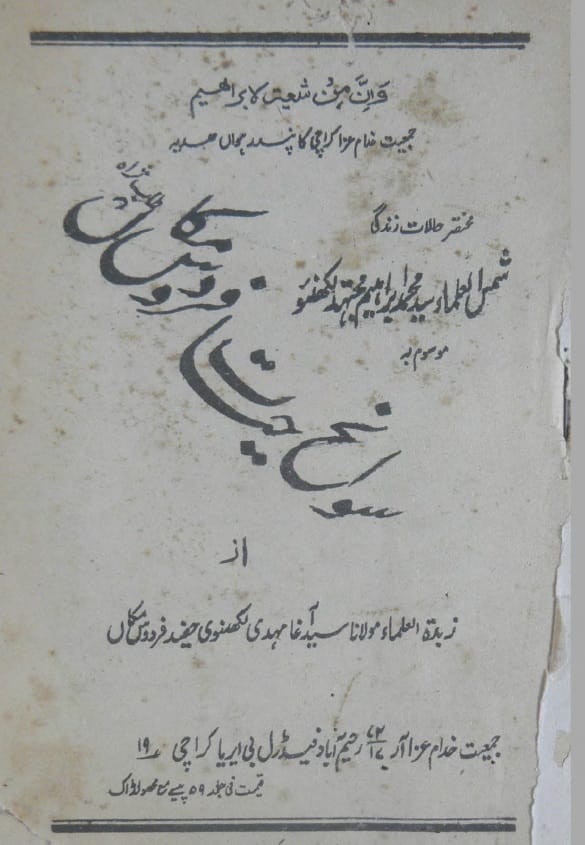 وَاِنَّ مِنْ شعیتہ لابراھیم
جمعیت خدام عزا کراچی کا پندرہواں ھدیہ
مختصر حالات زندگی
شمس العلماء سید محمد ابراہیم مجتہد لکھنؤ
موسوم بہ
سوانح حیات فردوس مکاں
طاب ثراہ
از
زبدۃ العلماء مولانا سید آغا مہدی لکھنوی حفید فردوس مکاں
جمعیت خدام عزا آر ۷۲/۱۷ رحیم آباد فیڈرل بی ایریا کراچی ۱۹
قیمت فی جلد ۵۹ پیسے محصولڈاک